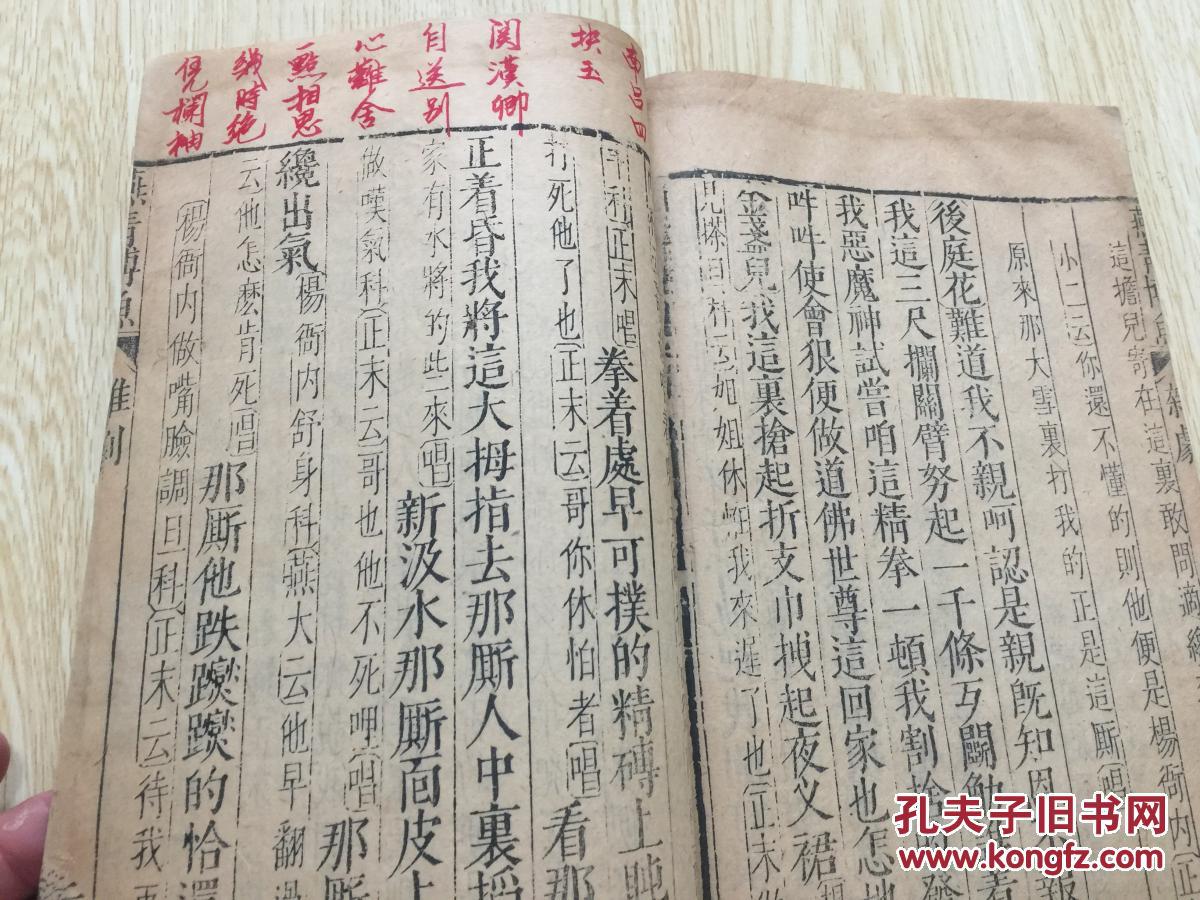 這擔兒寄在這裏敢問
小二云你還不懂的則他便是楊衙内正
原來那大雪裏打我的正是這厮唱
後庭花難道我不親呵認是親既知
我這三尺攔關臂努起一千條歹鬭
我惡魔神試嘗咱這精拳一頓我割
吽吽使會狠便做道佛世尊這回家也怎
金盞兒我這裏搶起折支巾拽起夜叉裙
姐姐休
我來遲了也正末
正末唱拳着處早可撲的精磚上
打死他了也正末云哥你休怕者唱看那
正着昏我將這大拇指去那厮人中裏掐
家有水將的些二來唱新汲水那厮面皮上
做嘆氣科正末云哥也他不死呷唱那厮
纔出氣楊衙内舒身科燕大云他早翻
云他怎麽肯死唱那厮他跌躞躞的恰還
楊衙内做嘴臉調旦科正末云待我
雜劇
南吕四
塊玉
関漢卿
自送别
心難舍
一點相思
幾時绝
凭欄袖
孔夫子旧书网
www.kongfz.com